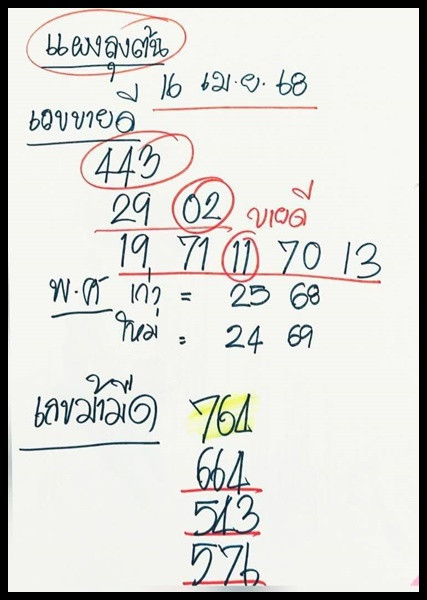 แผงลุงต้น
16 เม.ย. 68
เลขขายดี
443
29 02 ขายดี
19 71 11 70 13
พ.ศ เก่า = 25 68
ใหม่ = 24 69
เลขม้ามืด 764
664
543
576